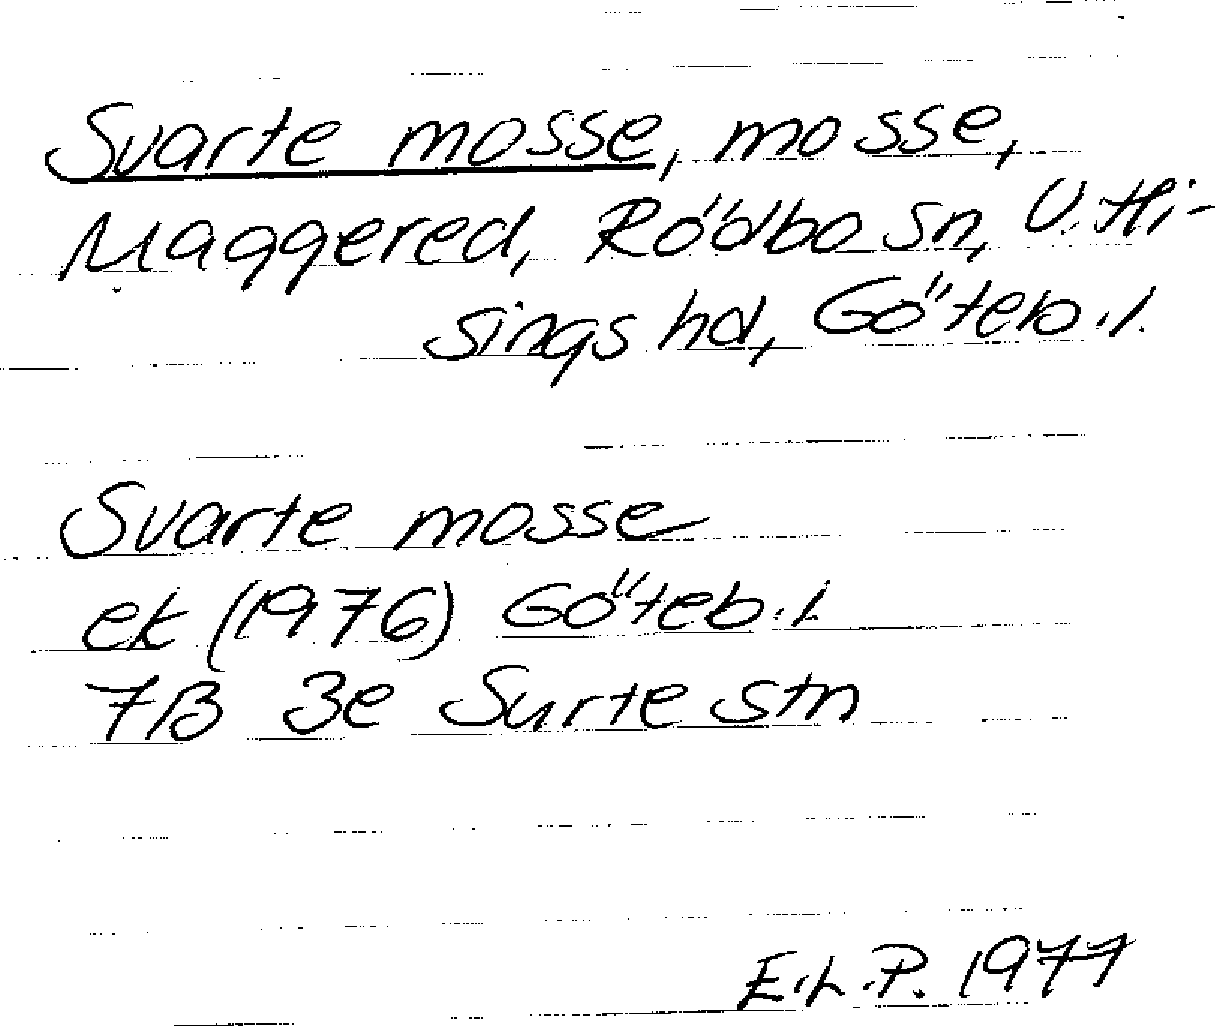 Svarte mosse, mosse,
Maggered, Rödbo sn, V. Hi-
sings hd, Göteb.l.
Svarte mosse
ek (1976) Göteb.l.
7B 3e Surte stn
E.L.P. 1977